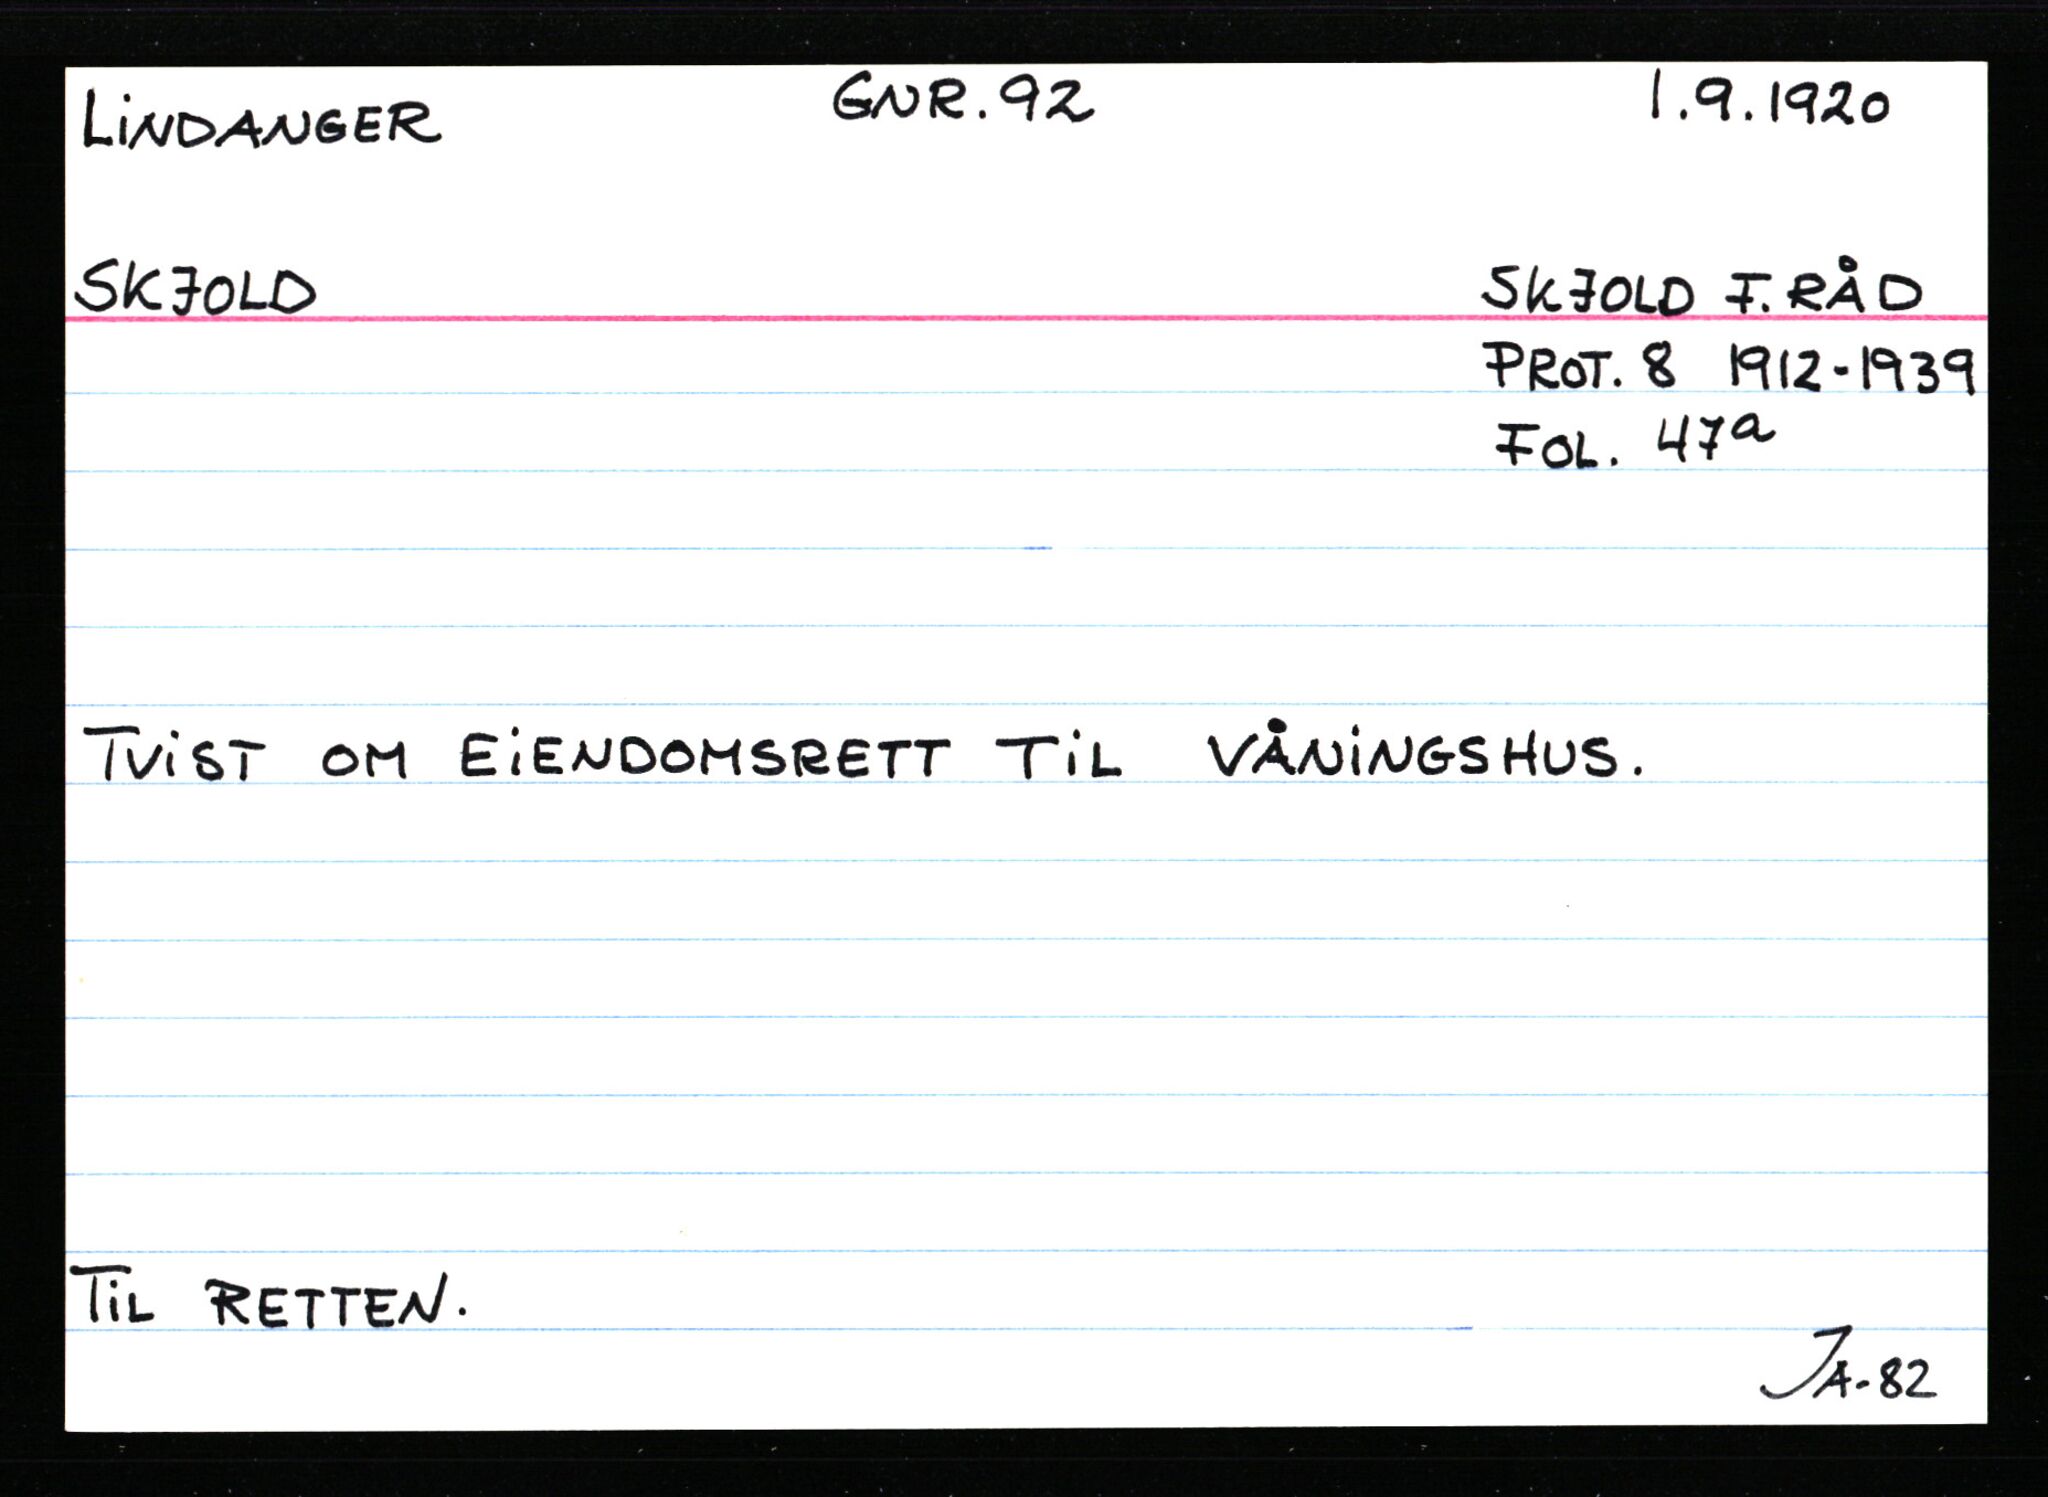 LINDANGER GNR. 92 1.9.1920
SKJOLD SKJOLD F. RÅD
PROT. 8 1912-1939
FOL. 47a
TVIST OM EIENDOMSRETT TIL VÅNINGSHUS.
TIL RETTEN.
JA-82